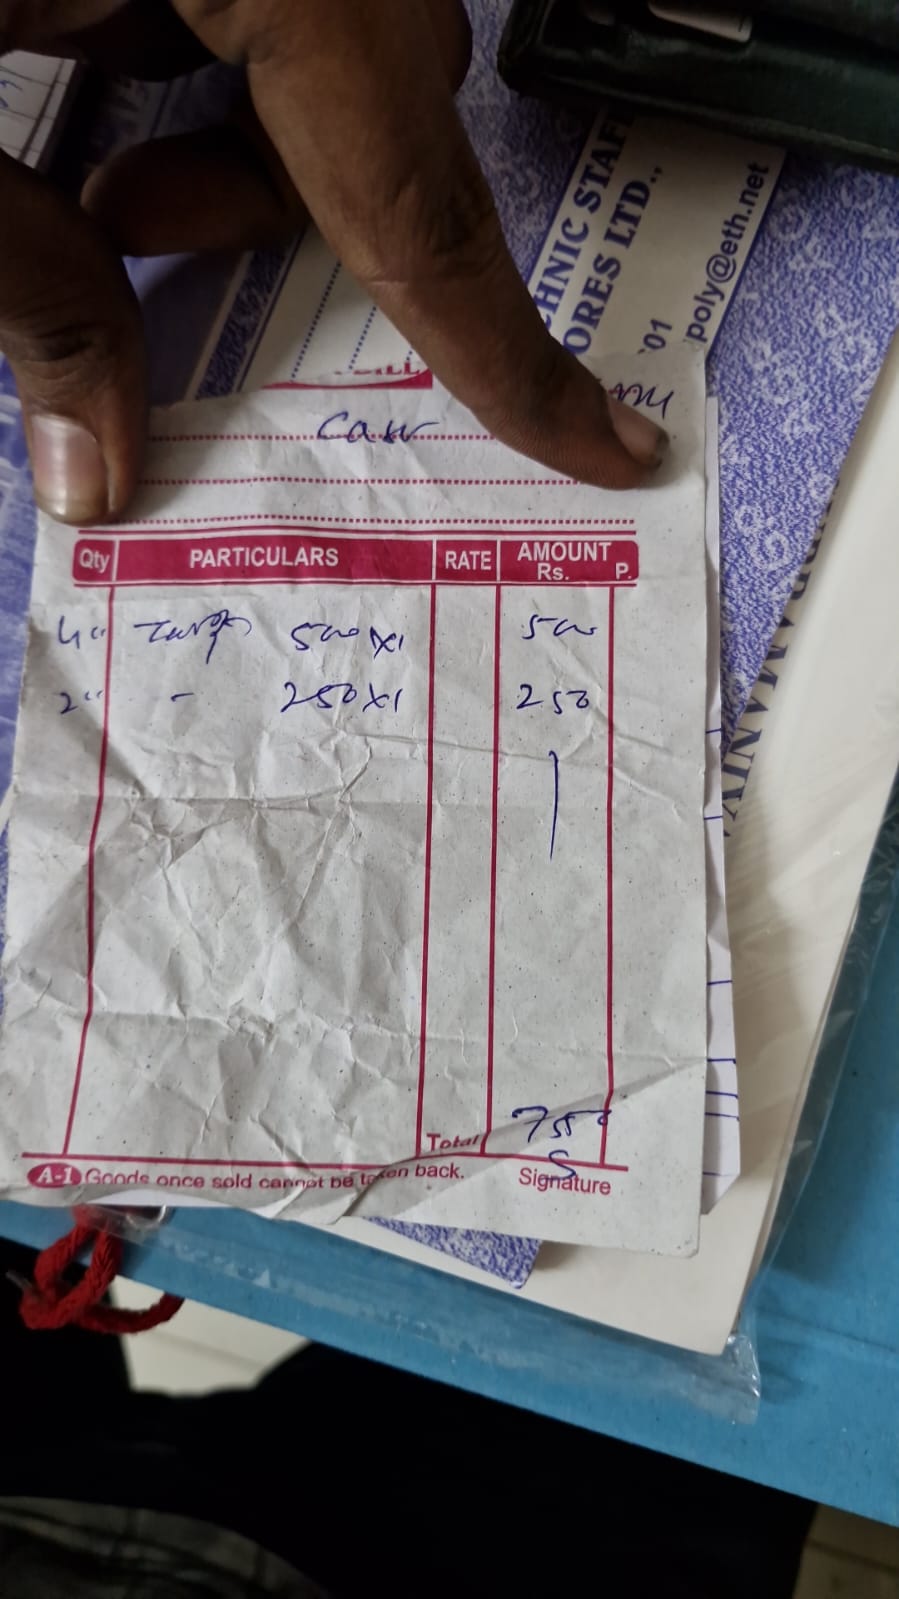 CHNIC STAF
ORES LTD.,
01
poly@eth.net
BILL
Qty PARTICULARS RATE AMOUNT Rs. P.
4" 500 x 1 500
2" - 250 x 1 250
Total 750
A-1 Goods once sold cannot be taken back. Signature